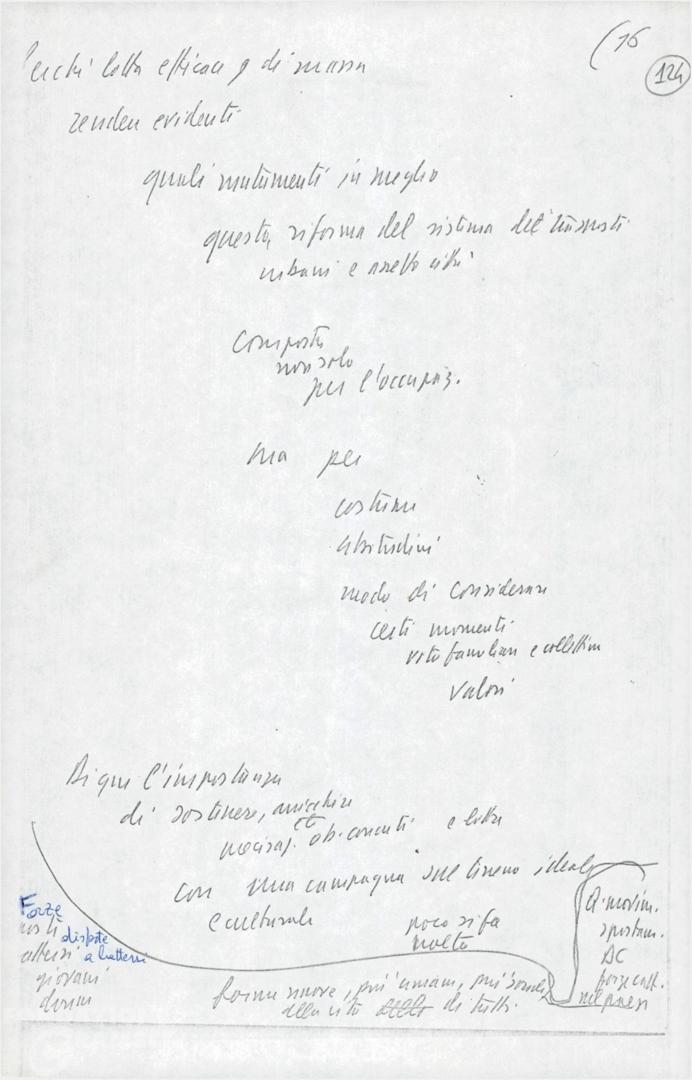 (16
124
Perché lotta efficace e di massa
rendere evidenti
quali mutamenti in meglio
questa riforma del sistema dei trasporti
urbani e assetto città
comporta
non solo
per l'occupaz.
ma per
costumi
abitudini
modo di considerare
certi momenti
vita familiare e collettiva
valori
Di qui l'importanza
di sostenere, arricchire
ob. concreti e lotte
con una campagna sul terreno ideale
e culturale
poco si fa
molto
Forze
disposte
a battersi
giovani
donne
forme nuove, più umane, più
della vita di tutti.
movim.
spostam.
DC
forze catt.
nel paese